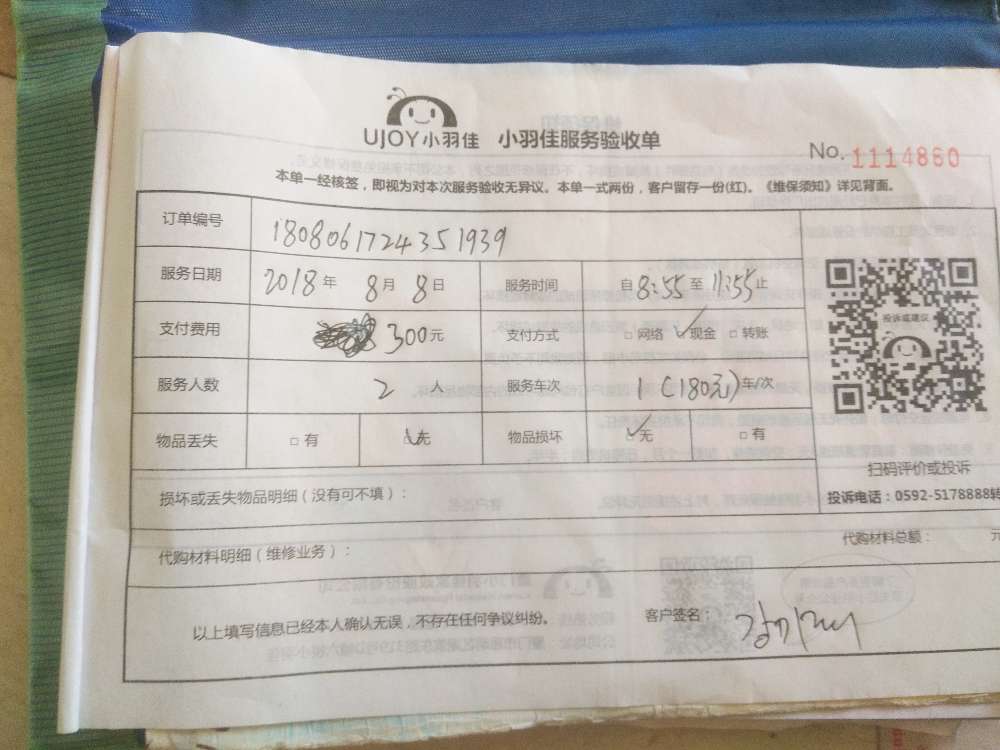 UJOY小羽佳 小羽佳服务验收单
No. 1114860
本单一经核签，即视为对本次服务验收无异议。本单一式两份，客户留存一份(红)。《维保须知》详见背面。
订单编号 1808061724351939
服务日期 2018年 8月 8日 服务时间 自8:55至11:55止
支付费用 300元 支付方式 □网络 ☑现金 □转账
服务人数 2人 服务车次 1（180元）车/次
物品丢失 □有 ☑无 物品损坏 ☑无 □有
投诉或建议
扫码评价或投诉
投诉电话：0592-5178888转
损坏或丢失物品明细（没有可不填）：
代购材料明细（维修业务）：
代购材料总额： 元
以上填写信息已经本人确认无误，不存在任何争议纠纷。
客户签名：